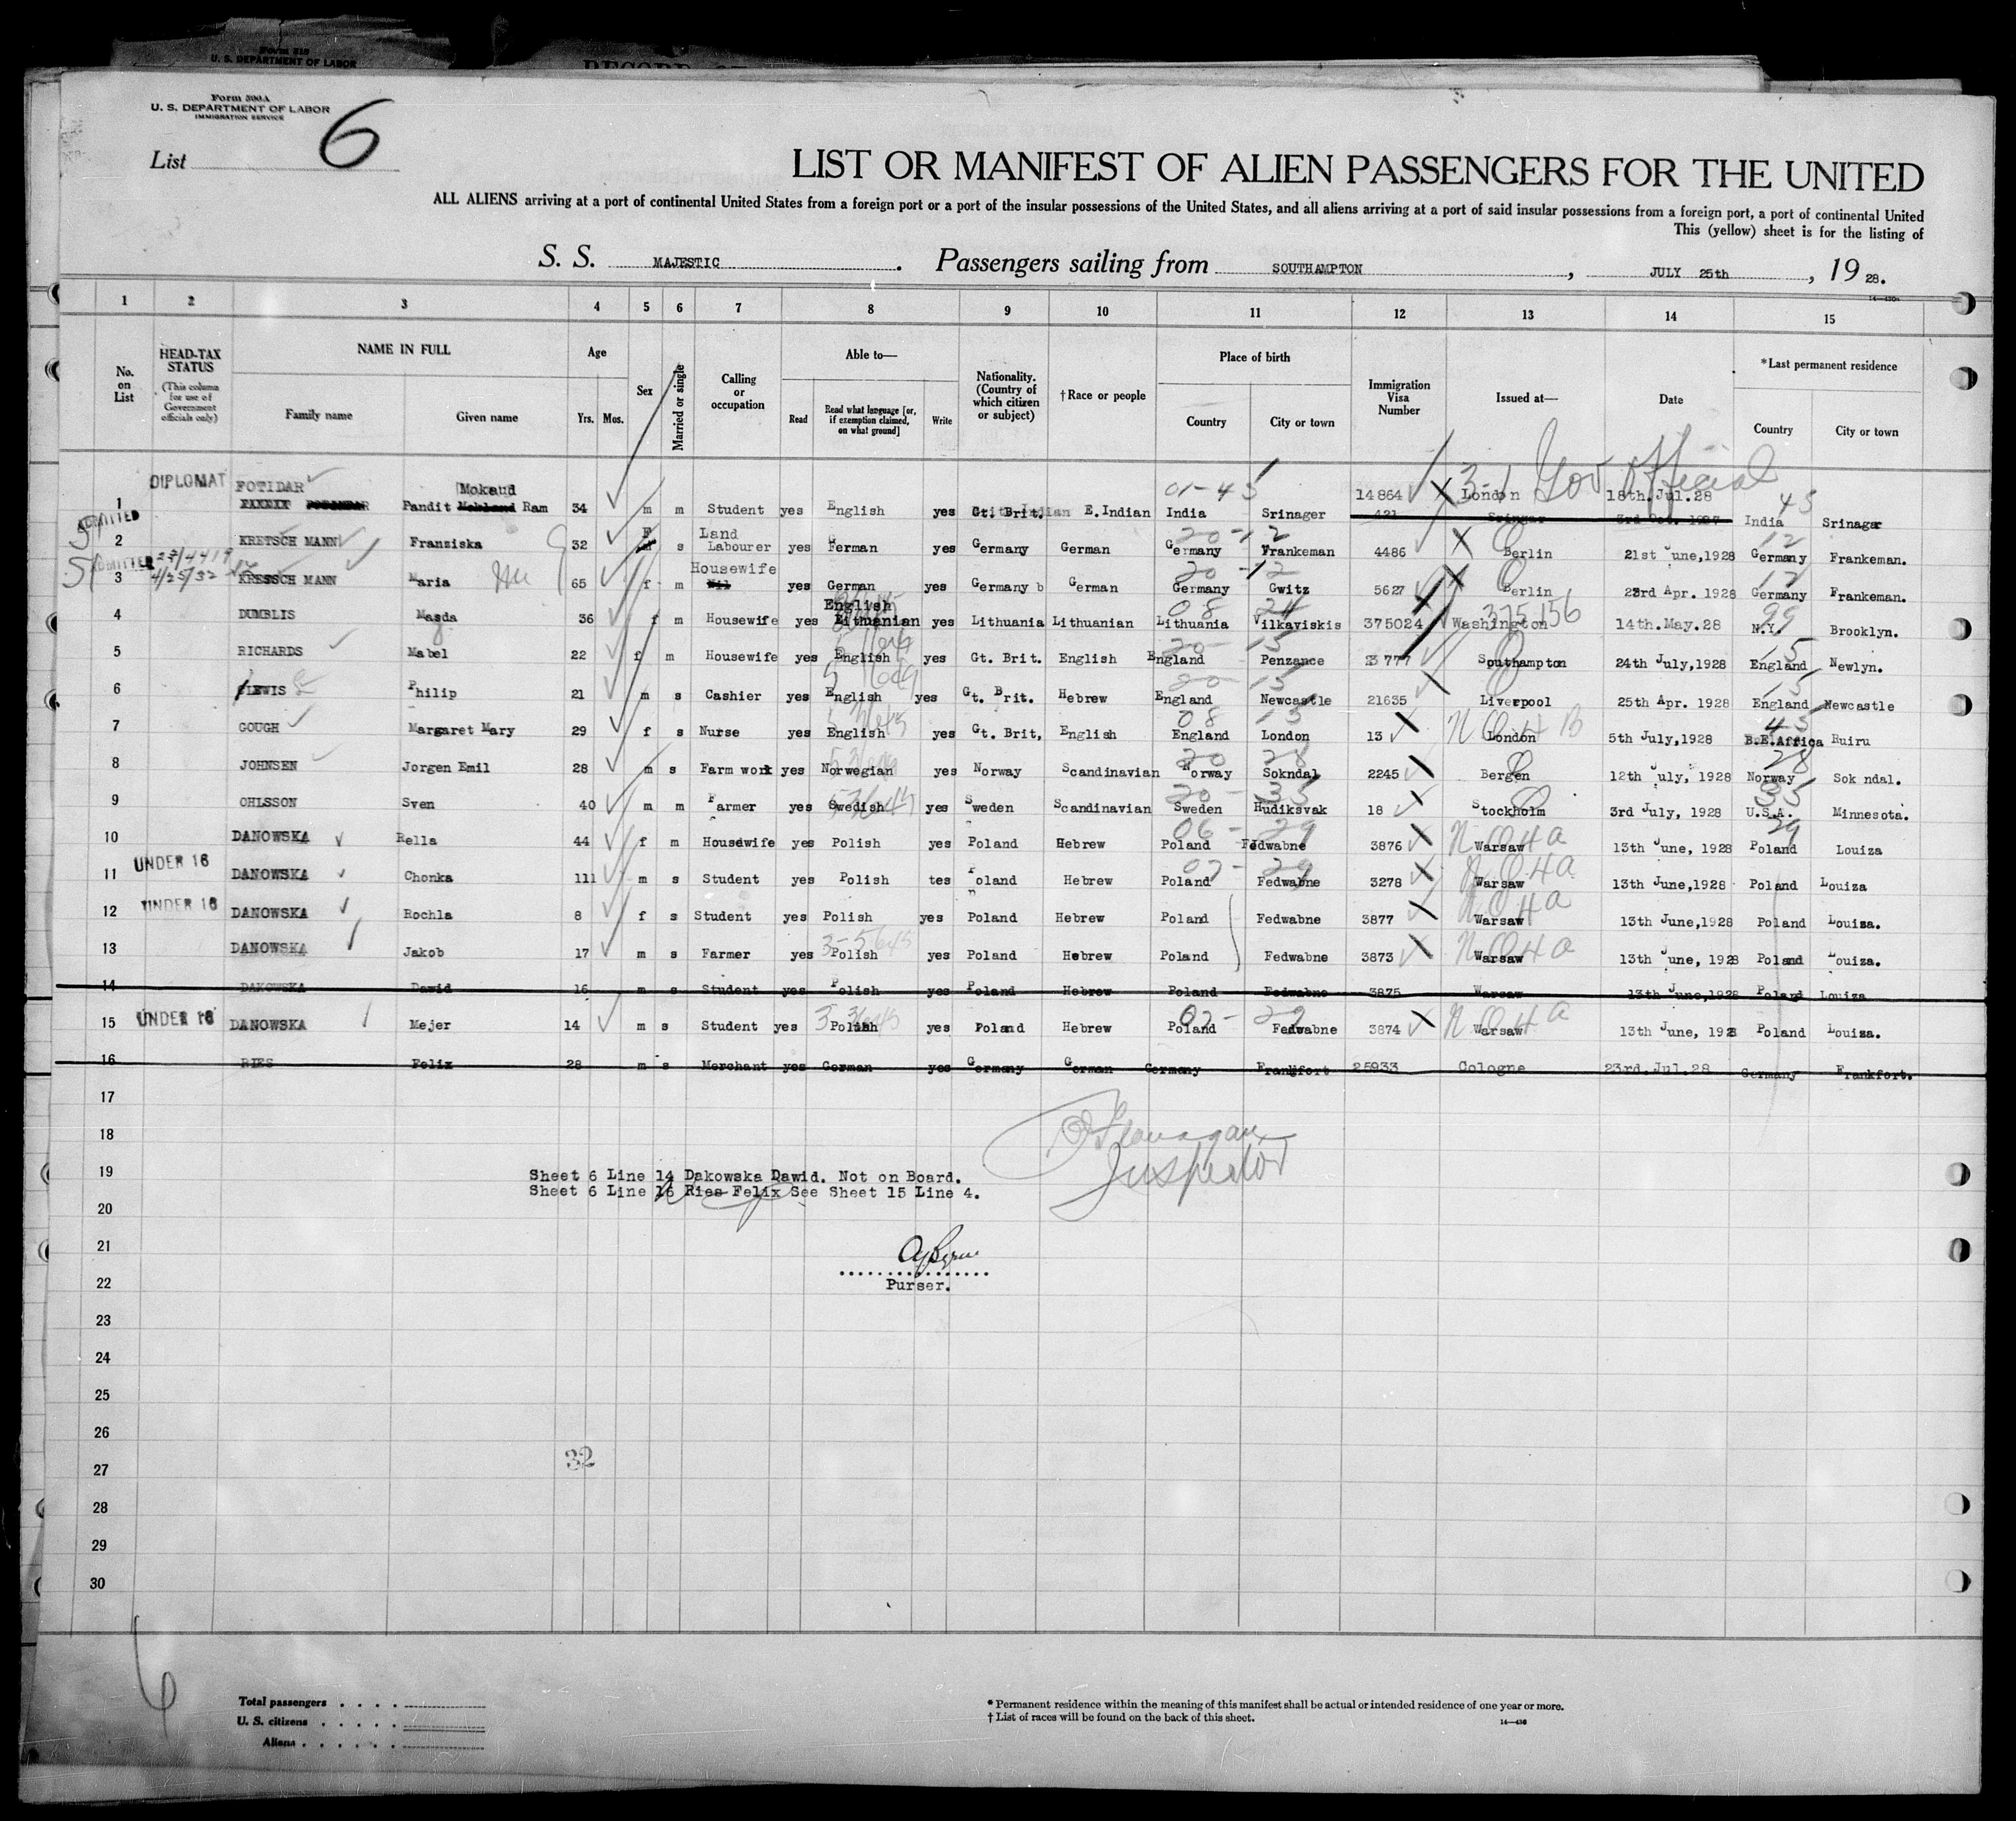 Form 500A
U. S. DEPARTMENT OF LABOR
IMMIGRATION SERVICE
Form 518
U. S. DEPARTMENT OF LABOR
List 6
LIST OR MANIFEST OF ALIEN PASSENGERS FOR THE UNITED
ALL ALIENS arriving at a port of continental United States from a foreign port or a port of the insular possessions of the United States, and all aliens arriving at a port of said insular possessions from a foreign port, a port of continental United
This (yellow) sheet is for the listing of
S. S. MAJESTIC. Passengers sailing from SOUTHAMPTON, JULY 25th, 19 28.
1 2 3 4 5 6 7 8 9 10 11 12 13 14 15
No. on List
HEAD-TAX STATUS (This column for use of Government officials only)
NAME IN FULL Family name Given name
Age Yrs. Mos.
Sex
Married or single
Calling or occupation
Able to— Read Read what language [or, if exemption claimed, on what ground] Write
Nationality. (Country of which citizen or subject)
†Race or people
Place of birth Country City or town
Immigration Visa Number
Issued at—
Date
*Last permanent residence Country City or town
DIPLOMAT FOTIDAR Mokaud 01-45 14864 3-1 London Gov Official 18th.Jul.28 45
1 Pandit Ram 34 m m Student yes English yes Gt. Brit. E.Indian India Srinager 421 3rd Oct. 1927 India Srinagar
ADMITTED F Land 20-12 12
2 KRETSCH MANN Franziska 32 s Labourer yes German yes Germany German Germany Frankeman 4486 Berlin 21st June,1928 Germany Frankeman.
ADMITTED 4/25/32 Housewife 20-12 12
3 KRETSCH MANN Maria 65 f m Nil yes German yes Germany German Germany Gwitz 5627 Berlin 23rd Apr. 1928 Germany Frankeman.
English 08 24 375156 99
4 DUMBLIS Magda 36 f m Housewife yes Lithuanian yes Lithuania Lithuanian Lithuania Vilkaviskis 375024 Washington 14th.May.28 N.Y. Brooklyn.
20-15 15
5 RICHARDS Mabel 22 f m Housewife yes English yes Gt. Brit. English England Penzance 3777 Southampton 24th July,1928 England Newlyn.
20 15 15
6 LEWIS Philip 21 m s Cashier yes English yes Gt. Brit. Hebrew England Newcastle 21635 Liverpool 25th Apr. 1928 England Newcastle
08 15 45
7 GOUGH Margaret Mary 29 f s Nurse yes English yes Gt. Brit, English England London 13 London 5th July,1928 B.E.Africa Ruiru
20 28 28
8 JOHNSEN Jorgen Emil 28 m s Farm work yes Norwegian yes Norway Scandinavian Norway Sokndal 2245 Bergen 12th July, 1928 Norway Sok ndal.
20-35 35
9 OHLSSON Sven 40 m m Farmer yes Swedish yes Sweden Scandinavian Sweden Hudiksvak 18 Stockholm 3rd July, 1928 U.S.A. Minnesota.
06-29 29
10 DANOWSKA Rella 44 f m Housewife yes Polish yes Poland Hebrew Poland Fedwabne 3876 Warsaw 13th June, 1928 Poland Louiza
UNDER 16 07-29
11 DANOWSKA Chonka 11 m s Student yes Polish tes Poland Hebrew Poland Fedwabne 3278 Warsaw 13th June,1928 Poland Louiza
UNDER 16
12 DANOWSKA Rochla 8 f s Student yes Polish yes Poland Hebrew Poland Fedwabne 3877 Warsaw 13th June,1928 Poland Louiza.
13 DANOWSKA Jakob 17 m s Farmer yes Polish yes Poland Hebrew Poland Fedwabne 3873 Warsaw 13th June, 1928 Poland Louiza.
14 DAKOWSKA Dawid 16 m s Student yes Polish yes Poland Hebrew Poland Fedwabne 3875 Warsaw 13th June,1928 Poland Louiza
UNDER 16 07-29
15 DANOWSKA Mejer 14 m s Student yes Polish yes Poland Hebrew Poland Fedwabne 3874 Warsaw 13th June, 1928 Poland Louiza.
16 RIES Felix 28 m s Merchant yes German yes Germany German Germany Frankfort 25933 Cologne 23rd.Jul.28 Germany Frankfort.
17
18 O'Flanagan
19 Inspector
Sheet 6 Line 14 Dakowska Dawid. Not on Board.
Sheet 6 Line 16 Ries Felix See Sheet 15 Line 4.
20
21
22 Purser.
23
24
25
26
32
27
28
29
30
6
Total passengers
U. S. citizens
Aliens
* Permanent residence within the meaning of this manifest shall be actual or intended residence of one year or more.
† List of races will be found on the back of this sheet.
14—436